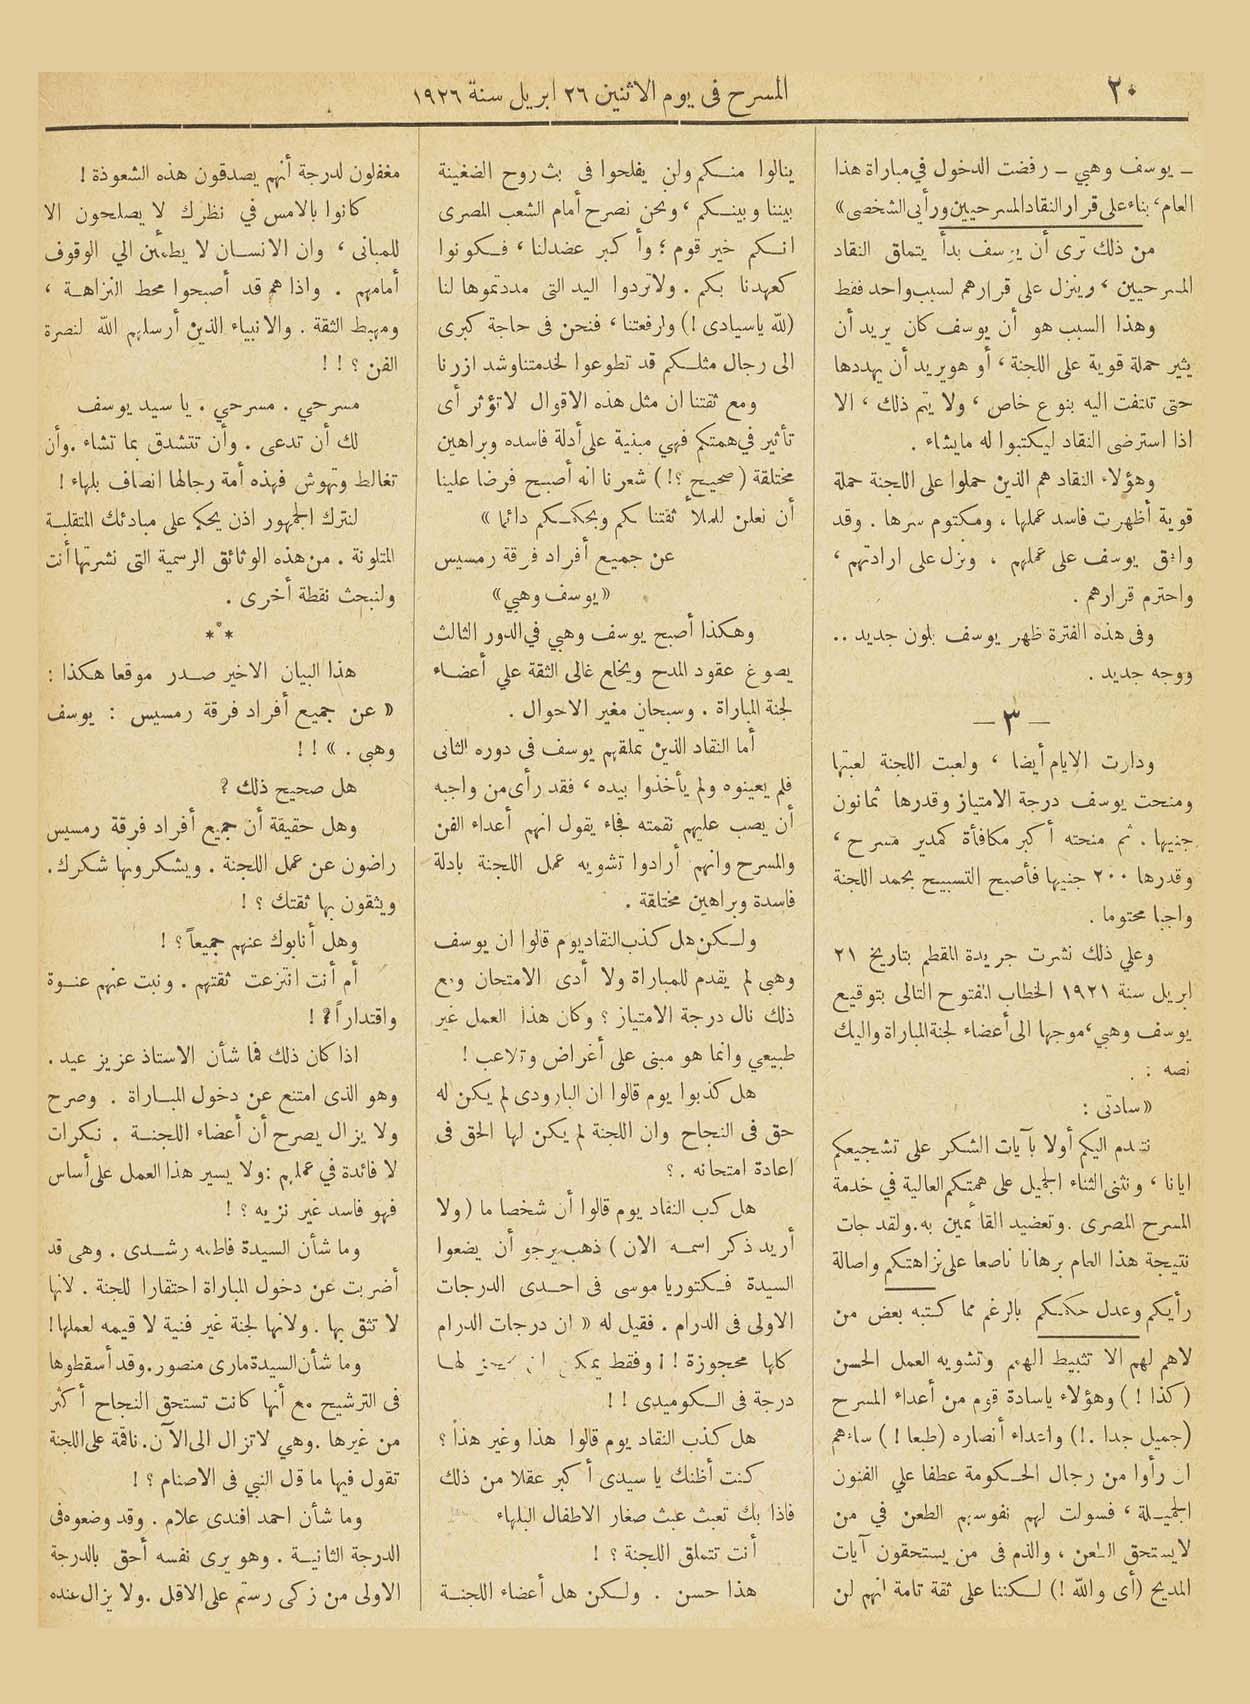 ٢٠
المسرح فى يوم الاثنين ٢٦ ابريل سنة ١٩٢٦
ـ يوسف وهبي ـ رفضت الدخول في مباراة هذا
العام، بناء على قرار النقاد المسرحيين ورأيي الشخصى»
من ذلك ترى أن يوسف بدأ يتملق النقاد
المسرحيين ، وينزل على قرارهم لسبب واحد فقط
وهذا السبب هو أن يوسف كان يريد أن
يثير حملة قوية على اللجنة ، أو هو يريد أن يهددها
حتى تلتفت اليه بنوع خاص ، ولا يتم ذلك ، الا
اذا استرضى النقاد ليكتبوا له مايشاء .
وهؤلاء النقاد هم الذين حملوا على اللجنة حملة
قوية أظهرت فاسد عملها ، ومكتوم سرها . وقد
وافق يوسف على عملهم ، ونزل على ارادتهم ،
واحترم قرارهم .
وفى هذه الفترة ظهر يوسف بلون جديد ..
ووجه جديد .
— ٣ —
ودارت الايام أيضا ، ولعبت اللجنة لعبتها
ومنحت يوسف درجة الامتياز وقدرها ثمانون
جنيها . ثم منحته أكبر مكافأة كمدير مسرح ،
وقدرها ٢٠٠ جنيها فأصبح التسبيح بحمد اللجنة
واجبا محتوما .
وعلي ذلك نشرت جريدة المقطم بتاريخ ٢١
ابريل سنة ١٩٢١ الخطاب المفتوح التالى بتوقيع
يوسف وهبي، موجها الى أعضاء لجنة المباراة واليك
نصه : .
« سادتى :
نتقدم اليكم أولا بآيات الشكر على تشجيعكم
ايانا ، ونثنى الثناء الجميل على همتكم العالية في خدمة
المسرح المصرى . وتعضيد القائمين به. ولقد جات
نتيجة هذا العام برهانا ناصعا على نزاهتكم واصالة
رأيكم وعدل حكمكم بالرغم مما كتبه بعض من
لاهم لهم الا تثبيط الهمم وتشويه العمل الحسن
(كذا !) وهؤلاء ياسادة قوم من أعداء المسرح
(جميل جدا .!) واعتداء أنصاره (طبعا !) ساءهم
ان رأوا من رجال الحكومة عطفا علي الفنون
الجميلة ، فسولت لهم نفوسهم الطعن في من
لايستحق الطعن ، والذم فى من يستحقون آيات
المديح (أى والله !) لكننا على ثقة تامة انهم لن
ينالوا منكم ولن يفلحوا فى بث روح الضغينة
بيننا وبينكم ، ونحن نصرح أمام الشعب المصرى
انكم خير قوم ؛ وأكبر عضدلنا ، فكونوا
كعهدنا بكم . ولاتردوا اليد التى مددتموها لنا
(لله ياسيادى !) ولرفعتنا ، فنحن فى حاجة كبرى
الى رجال مثلكم قد تطوعوا لخدمتنا وشد ازرنا
ومع ثقتنا ان مثل هذه الاقوال لاتؤثر أى
تأثير في همتكم فهي مبنية على أدلة فاسده وبراهين
مختلقة (صحيح ؟!) شعرنا انه أصبح فرضا علينا
أن نعلن للملأ ثقتنا كم وبحكمكم دائما »
عن جميع أفراد فرقة رمسيس
«يوسف وهبي»
وهكذا أصبح يوسف وهبي في الدور الثالث
يصوغ عقود المدح ويخلع غالى الثقة علي أعضاء
لجنة المباراة . وسبحان مغير الاحوال .
أما النقاد الذين تملقهم يوسف فى دوره الثانى
فلم يعينوه ولم يأخذوا بيده ، فقد رأى من واجبه
أن يصب عليهم نقمته فجاء يقول انهم أعداء الفن
والمسرح وانهم أرادوا تشويه عمل اللجنة بادلة
فاسدة وبراهين مختلقة .
ولكن هل كذب النقاد يوم قالوا ان يوسف
وهبى لم يقدم للمباراة ولا أدى الامتحان ومع
ذلك نال درجة الامتياز ؟ وكان هذا العمل غير
طبيعي وانما هو مبنى على أغراض وتلاعب !
هل كذبوا يوم قالوا ان البارودى لم يكن له
حق فى النجاح وان اللجنة لم يكن لها الحق فى
اعادة امتحانه . ؟
هل كذب النقاد يوم قالوا أن شخصا ما (ولا
أريد ذكر اسمه الان) ذهب يرجو أن يضعوا
السيدة فكتوريا موسى فى احدى الدرجات
الاولى فى الدرام . فقيل له « ان درجات الدرام
كلها محجوزة ! ! وفقط يمكن ان لها
درجة فى الكوميدى ! !
هل كذب النقاد يوم قالوا هذا وغير هذا ؟
كنت أظنك يا سيدى أكبر عقلا من ذلك
فاذا بك تعبث عبث صغار الاطفال البلهاء
أنت تتملق اللجنة ؟ !
هذا حسن . ولكن هل أعضاء اللجنة
مغفلون لدرجة أنهم يصدقون هذه الشعوذة !
كانوا بالامس في نظرك لا يصلحون الا
للمبانى ، وان الانسان لا يطمئن الي الوقوف
أمامهم . واذا هم قد أصبحوا محط النزاهة ،
ومهبط الثقة . والانبياء الذين أرسلهم الله لنصرة
الفن ؟ ! !
مسرحي . مسرحي . يا سيد يوسف
لك أن تدعى . وأن تتشدق بما تشاء . وأن
تغالط وتهوش فهذه أمة رجالها انصاف بلهاء !
لنترك الجمهور اذن يحكم على مبادئك المتقلبة
المتلونة . من هذه الوثائق الرسمية التى نشرتها أنت
ولنبحث نقطة أخرى .
***
هذا البيان الاخير صدر موقعا هكذا :
« عن جميع أفراد فرقة رمسيس : يوسف
وهبى . » ! !
هل صحيح ذلك ؟
وهل حقيقة أن جميع أفراد فرقة رمسيس
راضون عن عمل اللجنة . ويشكرونها شكرك .
ويثقون بها ثقتك ؟ !
وهل أنابوك عنهم جميعاً ؟ !
أم أنت انتزعت ثقتهم . ونبت عنهم عنوة
واقتداراً ؟ !
اذا كان ذلك فما شأن الاستاذ عزيز عيد .
وهو الذى امتنع عن دخول المباراة . وصرح
ولا يزال يصرح أن أعضاء اللجنة . نكرات
لا فائدة في عملهم : ولا يسير هذا العمل على أساس
فهو فاسد غير نزيه ؟ !
وما شأن السيدة فاطمه رشدى . وهى قد
أضربت عن دخول المباراة احتقارا للجنة . لانها
لا تثق بها . ولانها لجنة غير فنية لا قيمه لعملها !
وما شأن السيدة مارى منصور . وقد أسقطوها
فى الترشيح مع أنها كانت تستحق النجاح أكثر
من غيرها . وهي لاتزال الى الآن . ناقمة على اللجنة
تقول فيها ما قل النبي فى الاصنام ؟ !
وما شأن احمد افندى علام . وقد وضعوه فى
الدرجة الثانية . وهو يرى نفسه أحق بالدرجة
الاولى من زكى رستم على الاقل . ولا يزال عنده